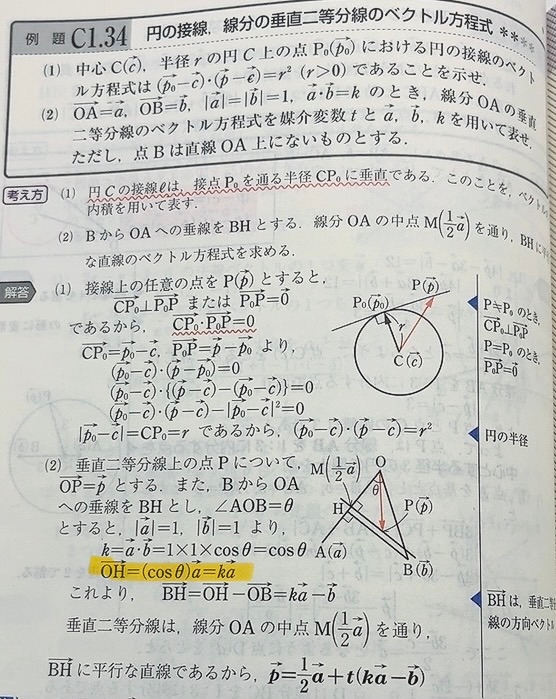 例題 C1.34 円の接線,線分の垂直二等分線のベクトル方程式 ****
(1) 中心 C(c⃗),半径 r の円 C 上の点 P₀(p₀⃗) における円の接線のベクト
ル方程式は (p₀⃗−c⃗)・(p⃗−c⃗)=r² (r>0) であることを示せ.
(2) OA⃗=a⃗, OB⃗=b⃗, |a⃗|=|b⃗|=1, a⃗・b⃗=k のとき,線分 OA の垂直
二等分線のベクトル方程式を媒介変数 t と a⃗, b⃗, k を用いて表せ.
ただし,点 B は直線 OA 上にないものとする.
考え方 (1) 円 C の接線 ℓ は,接点 P₀ を通る半径 CP₀ に垂直である.このことを,ベクトル
内積を用いて表す.
(2) B から OA への垂線を BH とする.線分 OA の中点 M(1/2 a⃗) を通り,BH に
な直線のベクトル方程式を求める.
解答 (1) 接線上の任意の点を P(p⃗) とすると,
CP₀⃗⊥P₀P⃗ または P₀P⃗=0⃗
であるから, CP₀⃗・P₀P⃗=0
CP₀⃗=p₀⃗−c⃗, P₀P⃗=p⃗−p₀⃗ より,
(p₀⃗−c⃗)・(p⃗−p₀⃗)=0
(p₀⃗−c⃗)・{(p⃗−c⃗)−(p₀⃗−c⃗)}=0
(p₀⃗−c⃗)・(p⃗−c⃗)−|p₀⃗−c⃗|²=0
|p₀⃗−c⃗|=CP₀=r であるから, (p₀⃗−c⃗)・(p⃗−c⃗)=r²
P₀(p₀⃗)
P(p⃗)
r
C(c⃗)
P≒P₀ のとき,
CP₀⃗⊥P₀P⃗
P=P₀ のとき,
P₀P⃗=0⃗
円の半径
(2) 垂直二等分線上の点 P について,
OP⃗=p⃗ とする.また,B から OA
への垂線を BH とし,∠AOB=θ
とすると,|a⃗|=1, |b⃗|=1 より,
k=a⃗・b⃗=1×1×cosθ=cosθ
OH⃗=(cosθ)a⃗=ka⃗
これより, BH⃗=OH⃗−OB⃗=ka⃗−b⃗
垂直二等分線は,線分 OA の中点 M(1/2 a⃗) を通り,
BH⃗ に平行な直線であるから, p⃗=1/2 a⃗+t(ka⃗−b⃗)
M(1/2 a⃗)
O
θ
H
P(p⃗)
A(a⃗)
B(b⃗)
BH⃗ は,垂直二等
線の方向ベクトル